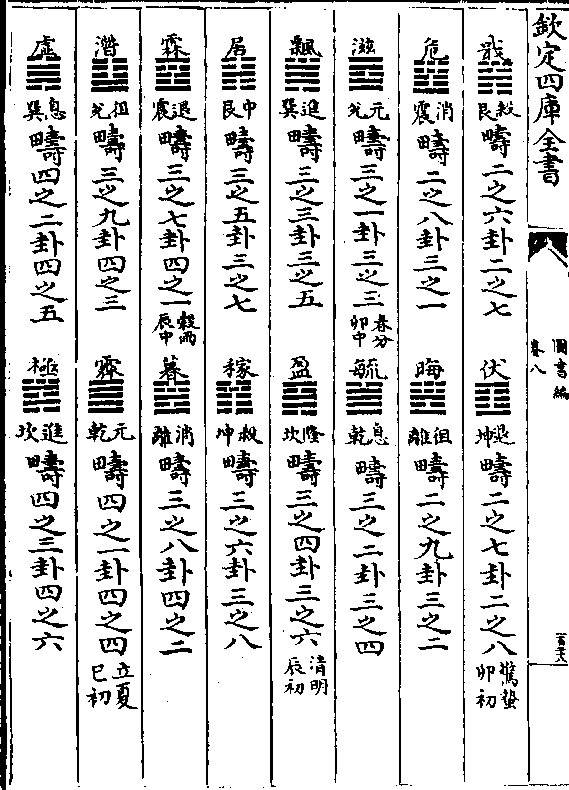 欽定四庫全書
圖書編
卷八
戢 救艮 疇二之六卦二之七
伏 退坤 疇二之七卦二之八 驚蟄卯初
危 消震 疇二之八卦三之一
晦 徂離 疇二之九卦三之二
滋 元兊 疇三之一卦三之三 春分卯中
毓 息乾 疇三之二卦三之四
飄 進巽 疇三之三卦三之五
盈 隆坎 疇三之四卦三之六 清明辰初
居 中艮 疇三之五卦三之七
稼 救坤 疇三之六卦三之八
霖 退震 疇三之七卦四之一 榖雨辰中
暮 消離 疇三之八卦四之二
潛 徂兊 疇三之九卦四之三
霽 元乾 疇四之一卦四之四 立夏巳初
虚 息巽 疇四之二卦四之五
極 進坎 疇四之三卦四之六